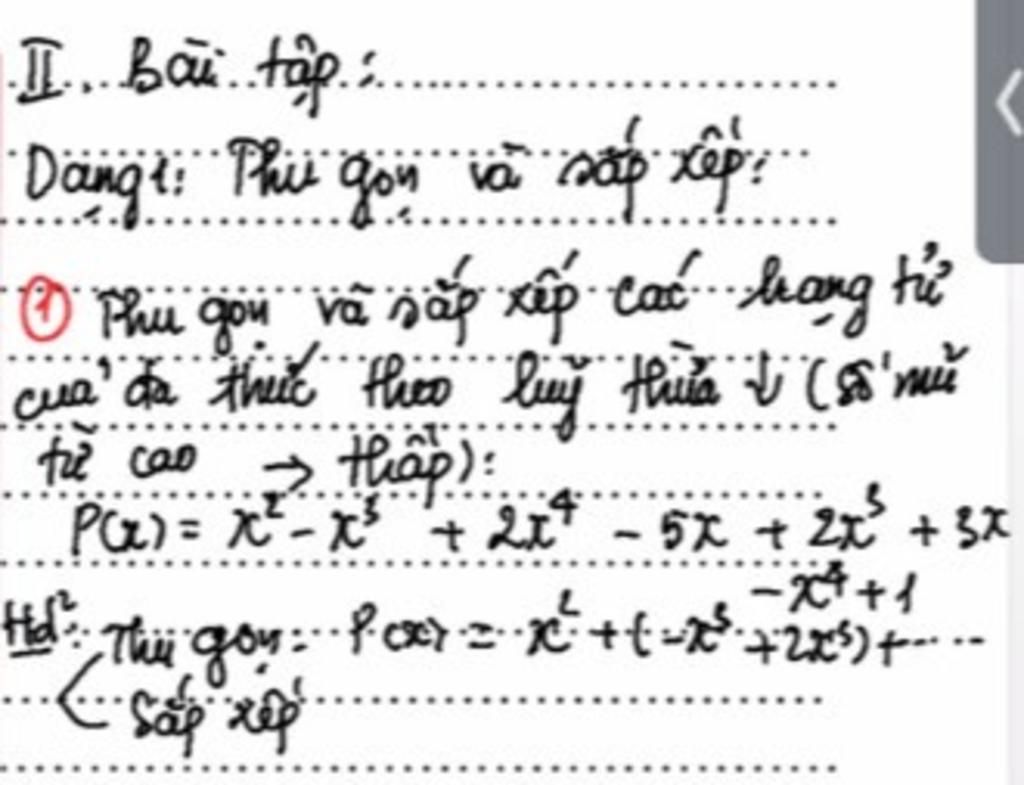 II. Bài tập:
Dạng 1: Thu gọn và sắp xếp:
① Thu gọn và sắp xếp các hạng tử
của đa thức theo luỹ thừa ↓ (số mũ
từ cao → thấp):
P(x) = x² - x³ + 2x⁴ - 5x + 2x³ + 3x
- x⁴ + 1
Hd²: Thu gọn: P(x) = x² + (-x³ + 2x³) + ......
Sắp xếp